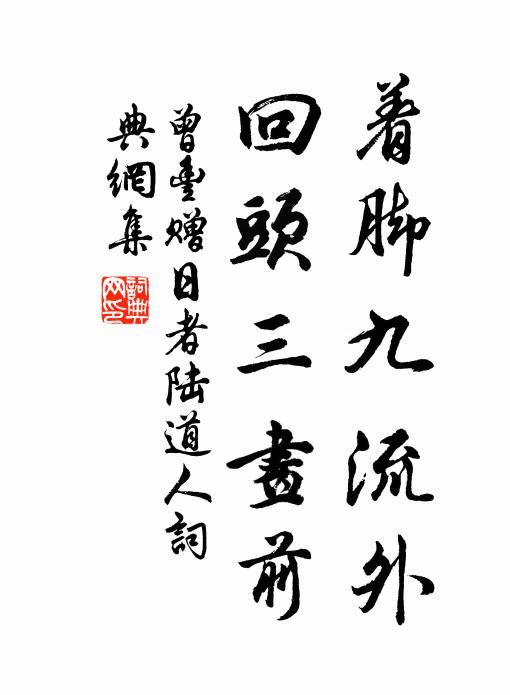 着脚九流外
回頭三畫前
曾豐赠日者陆道人詞
典網集
詞典网印